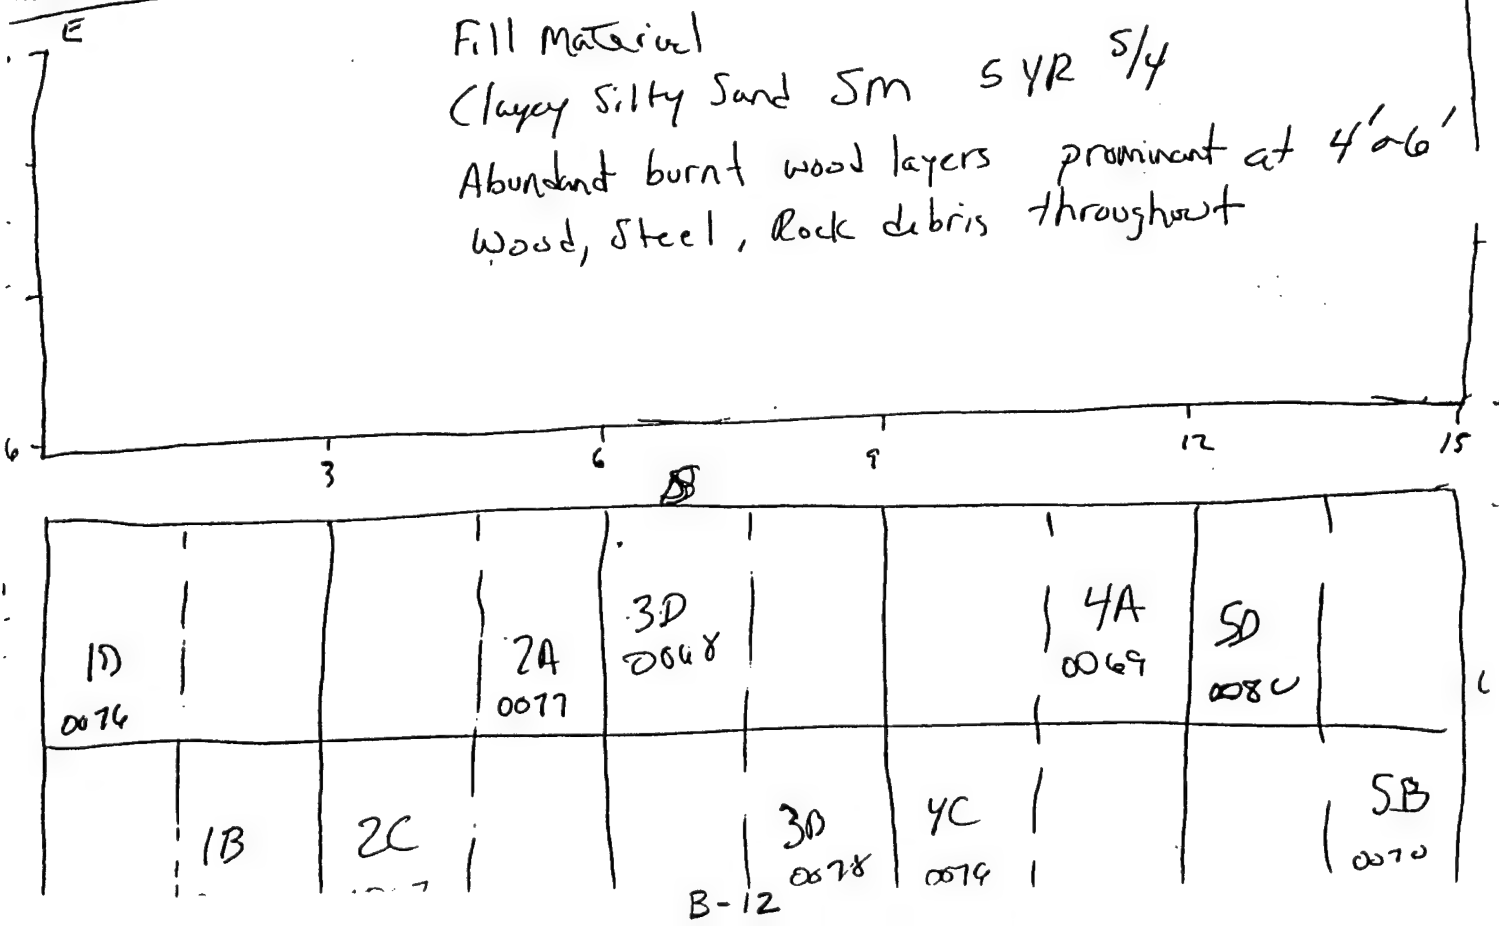 E
Fill Material
Clayey Silty Sand SM 5 YR 5/4
Abundant burnt wood layers prominant at 4' 6'
Wood, Steel, Rock debris throughout
6
3 6 9 12 15
1D 2A 3D 4A 5D
0076 0077 0068 0069 0080
1B 2C 3B 4C 5B
0078 0079 0070
B-12